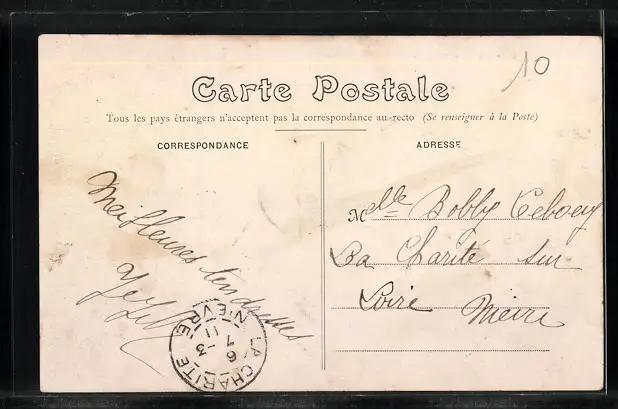 10
Carte Postale
Tous les pays étrangers n'acceptent pas la correspondance au recto (Se renseigner à la Poste)
CORRESPONDANCE
ADRESSE
Meilleures tendresses
Melle Bobby
La Charité sur
Loire Nièvre
LA CHARITE
NIEVRE
6-3
7
11